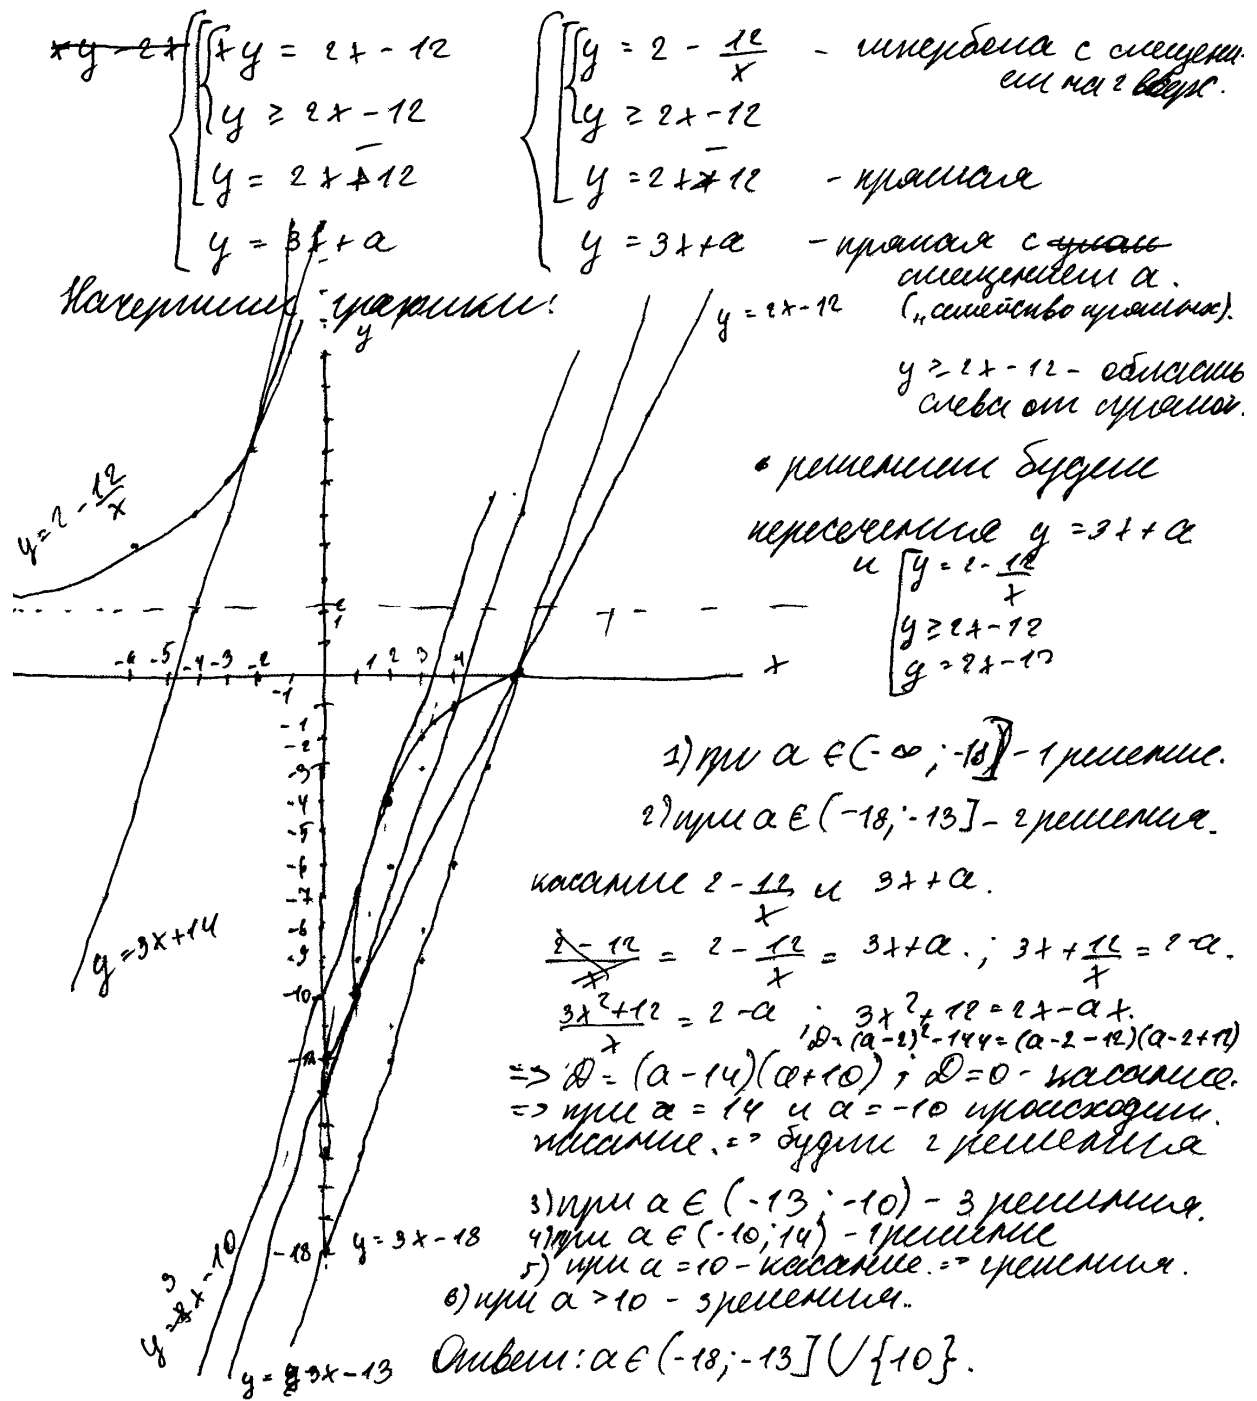 xy = 2x - 12
y ≥ 2x - 12
y = 2x - 12
y = 3x + a
y = 2 - 12/x - гипербола с смещени-
ем на 2 вверх.
y ≥ 2x - 12
y = 2x - 12 - прямая
y = 3x + a - прямая с
смещением a.
("семейство прямых).
Начертим графики:
y = 2x - 12
y ≥ 2x - 12 - область
слева от прямой.
y
y = 2 - 12/x
• решением будет
пересечения y = 3x + a
и y = 2 - 12/x
y ≥ 2x - 12
y = 2x - 12
2
1
-6 -5 -4 -3 -2 -1 1 2 3 4 x
-1
-2
-3
-4
-5
-6
-7
-8
-9
-10
-12
-18
1) при a ∈ (-∞; -18] - 1 решение.
2) при a ∈ (-18; -13] - 2 решения.
касание 2 - 12/x и 3x + a.
2 - 12/x = 2 - 12/x = 3x + a.; 3x + 12/x = 2 - a.
(3x² + 12)/x = 2 - a ; 3x² + 12 = 2x - ax.
; D = (a-2)² - 144 = (a-2-12)(a-2+12)
=> D = (a-14)(a+10) ; D = 0 - касание.
=> при a = 14 и a = -10 происходит
касание. => будет 2 решения
3) при a ∈ (-13; -10) - 3 решения.
4) при a ∈ (-10; 14) - 1 решение
5) при a = 10 - касание. => 2 решения.
6) при a > 10 - 3 решения.
Ответ: a ∈ (-18; -13] ∪ {10}.
y = 3x + 14
y = 3x - 10
y = 3x - 13
y = 3x - 18